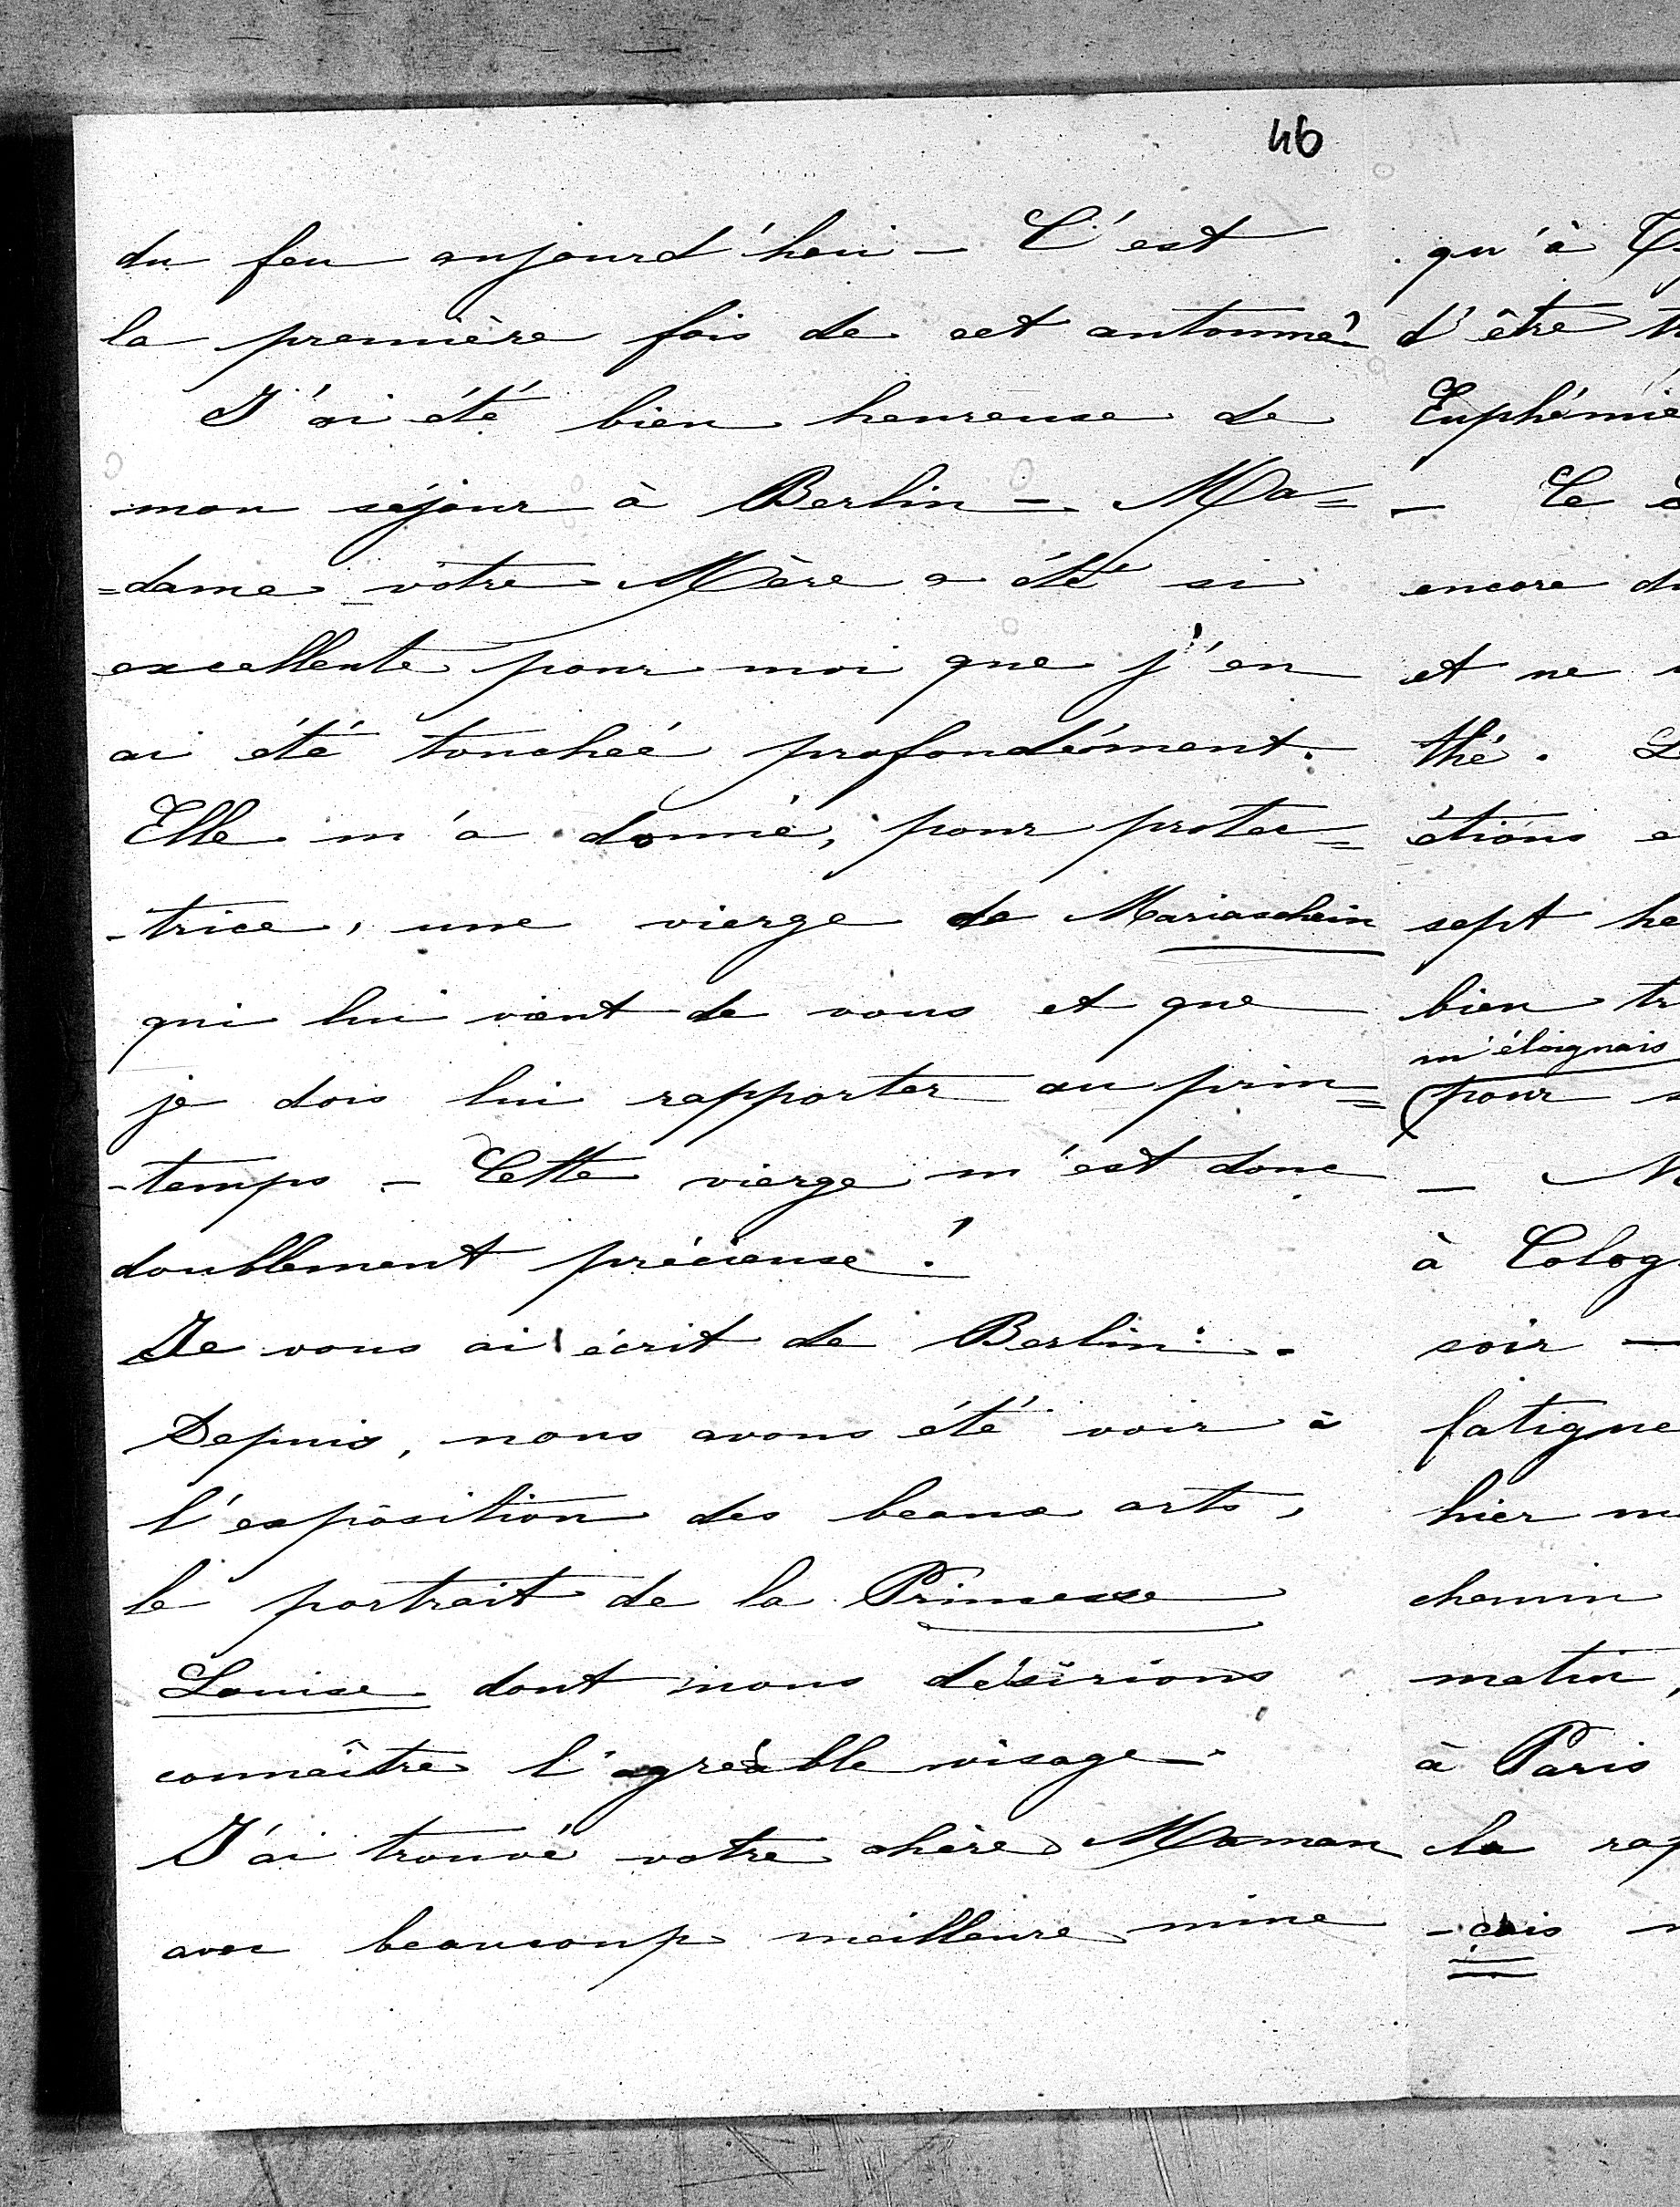 46
du feu aujourd'hui – C'est
la première fois de cet automne.
J'ai été bien heureuse de
mon séjour à Berlin – Ma=
=dame votre Mère a été si
excellente pour moi que j'en
ai été touchée profondément.
Elle m'a donné, pour protec=
-trice, une vierge de Mariaschein
qui lui vient de vous et que
je dois lui rapporter au prin=
-temps – Cette vierge m'est donc
doublement précieuse !
Je vous ai écrit de Berlin.
Depuis, nous avons été voir à
l'exposition des beaux arts,
le portrait de la Princesse
Louise dont nous désirions
connaître l'agréable visage.
J'ai trouvé votre chère Maman
avec beaucoup meilleure mine
qu'à
d'être
Euphémie
– Ce
encore
et ne
thé.
étions
sept
bien
m'éloignais
pour
–
à
soir –
fatigue
hier
chemin
matin,
à Paris
la
-çais